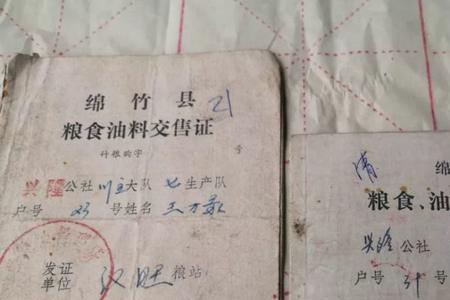 绵竹县 21
粮食油料交售证
什粮购字 号
兴隆公社川主大队七生产队
户号 23 号姓名王方
发证
单位 汉旺粮站
清
绵
粮食、油
兴隆公社
户号 21 号